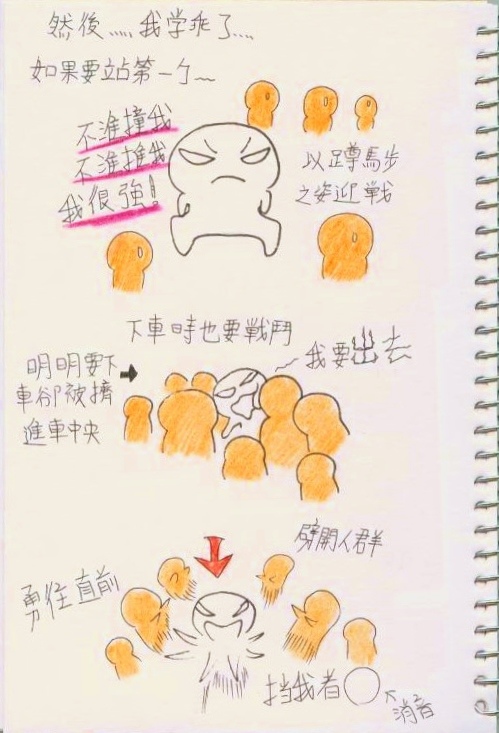 然後.....我学乖了...
如果要站第一ㄅ~
不准撞我
不准推我
我很強!
以蹲馬步
之姿迎戰
下車時也要戰鬥
我要出去
明明要下
車卻被擠
進車中央
劈開人群
勇往直前
挡我者○
消音